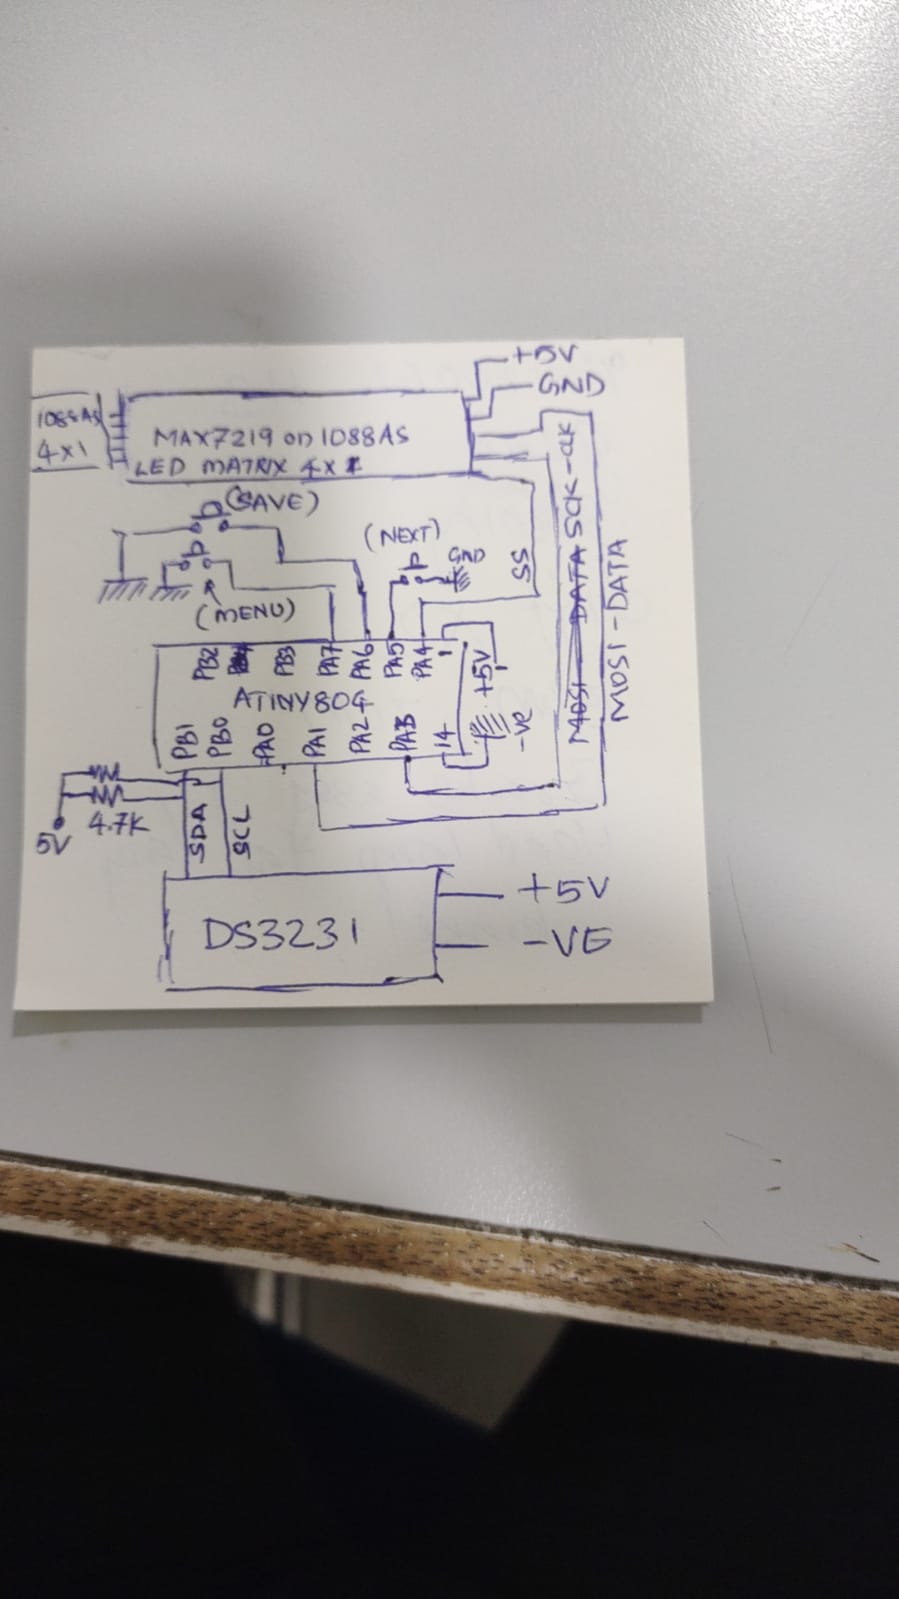 +5V
GND
1088AS
4x1
MAX7219 on 1088AS
LED MATRIX 4x1
(SAVE)
(NEXT)
GND
(MENU)
SS
SCK-CLK
MOSI-DATA
MOSI-DATA
PB2
PB3
PA7
PA6
PA5
PA4
1
+5V
ATINY804
PB1
PB0
PA0
PA1
PA2
PA3
14
-VE
4.7K
5V
SDA
SCL
DS3231
+5V
-VE